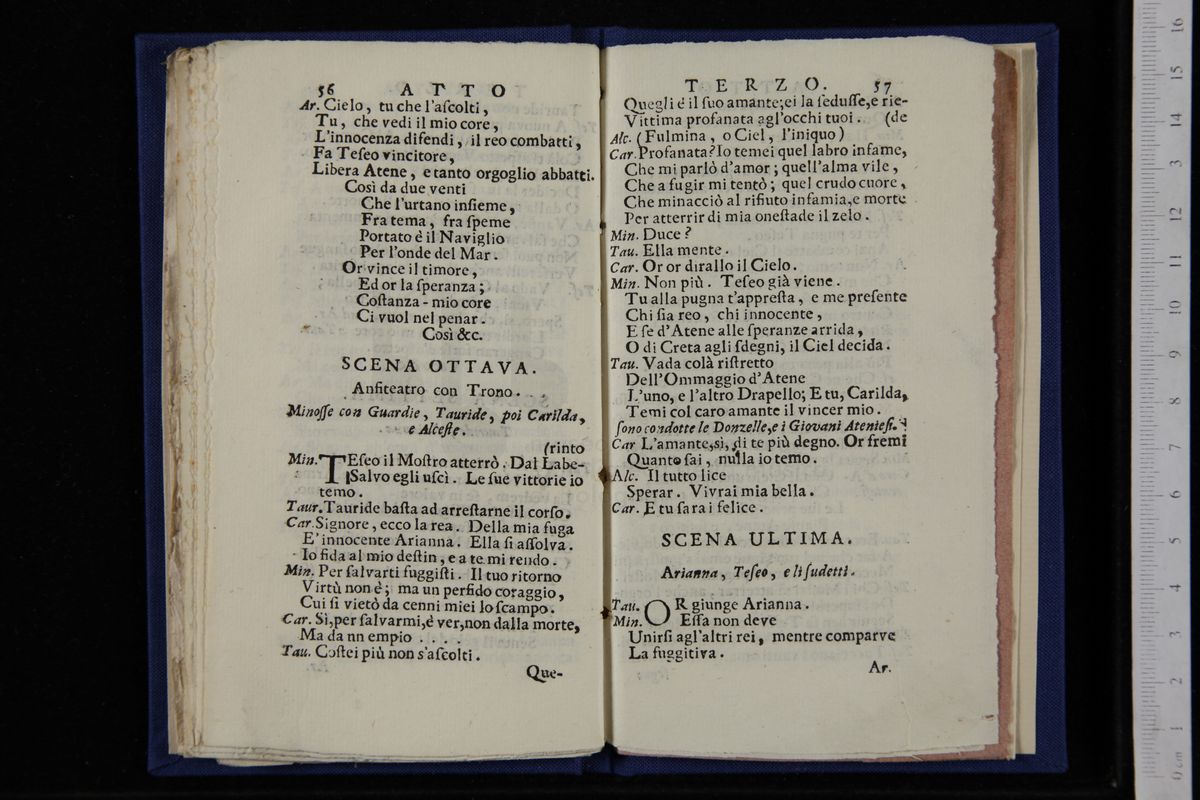 56 ATTO
Ar. Cielo, tu che l'aſcolti,
Tu, che vedi il mio core,
L'innocenza difendi, il reo combatti,
Fa Teſeo vincitore,
Libera Atene, e tanto orgoglio abbatti.
Così da due venti
Che l'urtano inſieme,
Fra tema, fra ſpeme
Portato è il Naviglio
Per l'onde del Mar.
Or vince il timore,
Ed or la ſperanza;
Coſtanza - mio core
Ci vuol nel penar.
Così &c.
SCENA OTTAVA.
Anfiteatro con Trono.
Minoſſe con Guardie, Tauride, poi Carilda,
e Alceſte.
(rinto
Min. TEſeo il Moſtro atterrò. Dal Labe-
Salvo egli uſcì. Le ſue vittorie io
temo.
Taur. Tauride baſta ad arreſtarne il corſo.
Car. Signore, ecco la rea. Della mia fuga
E' innocente Arianna. Ella ſi aſſolva.
Io fida al mio deſtin, e a te mi rendo.
Min. Per ſalvarti fuggiſti. Il tuo ritorno
Virtù non è; ma un perfido coraggio,
Cui ſi vietò da cenni miei lo ſcampo.
Car. Sì, per ſalvarmi, è ver, non dalla morte,
Ma da nn empio ....
Tau. Coſtei più non s'aſcolti.
Que-
TERZO. 57
Quegli è il ſuo amante; ei la ſeduſſe, e rie-
Vittima profanata agl'occhi tuoi. (de
Alc. (Fulmina, o Ciel, l'iniquo)
Car. Profanata? Io temei quel labro infame,
Che mi parlò d'amor; quell'alma vile,
Che a fugir mi tentò; quel crudo cuore,
Che minacciò al rifiuto infamia, e morte
Per atterrir di mia oneſtade il zelo.
Min. Duce?
Tau. Ella mente.
Car. Or or dirallo il Cielo.
Min. Non più. Teſeo già viene.
Tu alla pugna t'appreſta, e me preſente
Chi ſia reo, chi innocente,
E ſe d'Atene alle ſperanze arrida,
O di Creta agli ſdegni, il Ciel decida.
Tau. Vada colà riſtretto
Dell'Ommaggio d'Atene
L'uno, e l'altro Drapello; E tu, Carilda,
Temi col caro amante il vincer mio.
ſono condotte le Donzelle, e i Giovani Atenieſi.
Car L'amante, sì, di te più degno. Or fremi
Quanto ſai, nulla io temo.
Alc. Il tutto lice
Sperar. Vivrai mia bella.
Car. E tu ſarai felice.
SCENA ULTIMA.
Arianna, Teſeo, e li ſudetti.
Tau. OR giunge Arianna.
Min. Eſſa non deve
Unirſi agl'altri rei, mentre comparve
La fuggitiva.
Ar.
16
15
14
13
12
11
10
9
8
7
6
5
4
3
2
1
0 cm